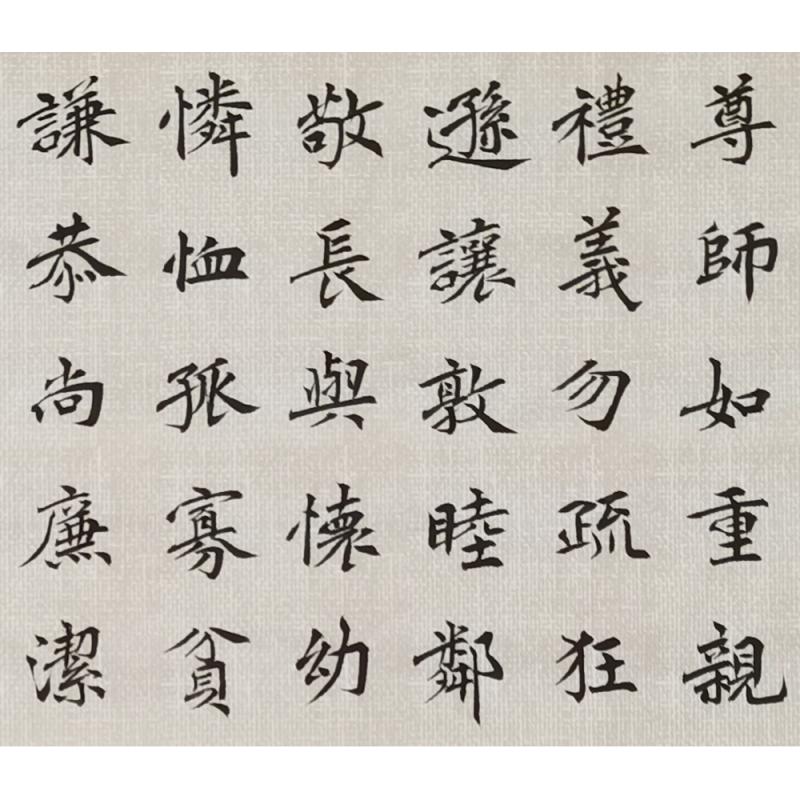 尊師如重親
禮義勿疏狂
遜讓敦睦鄰
敬長與懷幼
憐恤孤寡貧
謙恭尚廉潔